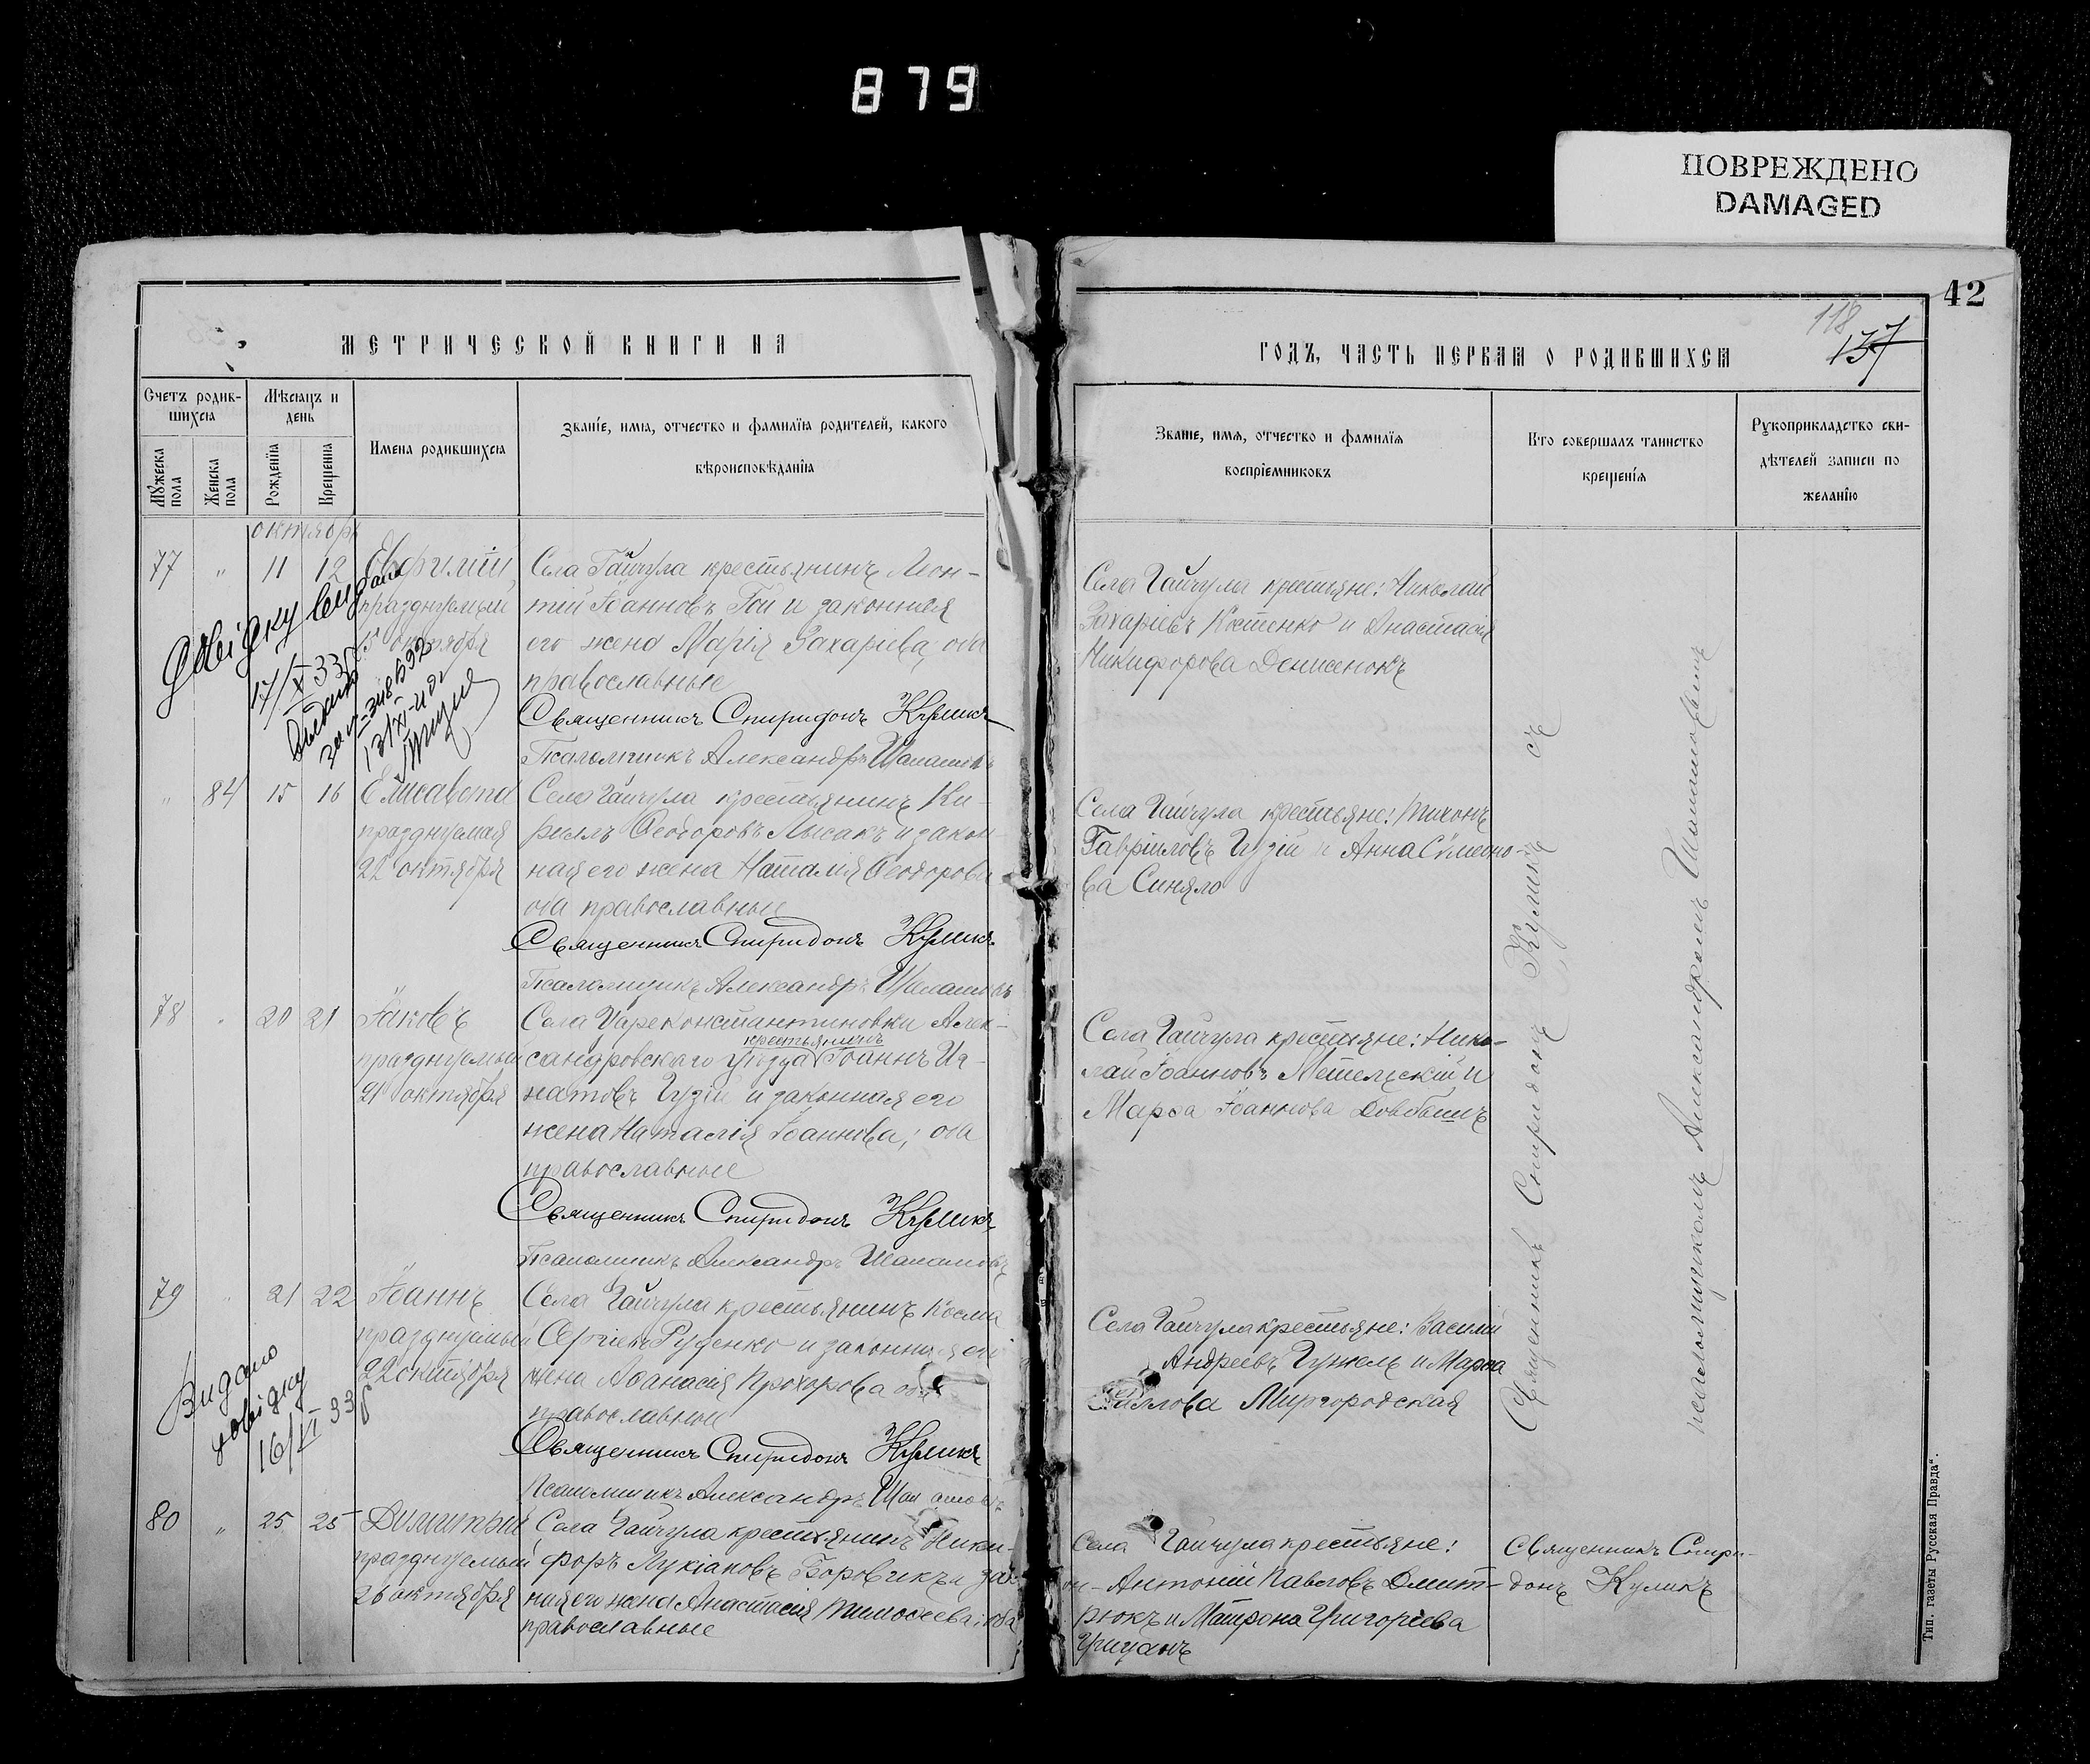 879
ПОВРЕЖДЕНО
DAMAGED
42
118
137
МЕТРИЧЕСКОЙ КНИГИ НА
Счетъ родив-
шихся
Мѣсяцъ и
день
Мужеска
пола
Женска
пола
Рожденїя
Крещенїя
Имена родившихся
Званїе, имя, отчество и фамилїя родителей, какого
вѣроисповѣданїя
октября
77 " 11 12
Евфимій
празднуемый
15 октября
Села Гайчула крестьянинъ Леон-
тій Іоанновъ Гой и законная
его жена Марія Захаріева, оба
православные
Священникъ Спиридонъ Куликъ
Псаломщикъ Александръ
17/X 33
" 84 15 16
Елисавета
празднуемая
22 октября
Села Гайчула крестьянинъ Ки-
риллъ Ѳеодоровъ Лысакъ и закон-
ная его жена Наталія Ѳеодорова
оба православные
Священникъ Спиридонъ Куликъ
Псаломщикъ Александръ
78 " 20 21
Іаковъ
празднуемый
21 октября
Села Цареконстантиновки Алек-
крестьянинъ
сандровскаго уѣзда Іоаннъ Иг-
натовъ Гузій и законная его
жена Наталія Іоаннова; оба
православные
Священникъ Спиридонъ Куликъ
Псаломщикъ Александръ
79 " 21 22
Іоаннъ
празднуемый
22 октября
Села Гайчула крестьянинъ Косма
Сергіевъ Руденко и законная его
жена Аѳанасія Прохорова оба
православные
Священникъ Спиридонъ Куликъ
Псаломщикъ Александръ
Видано
довідку
16/XI 33
80 " 25 25
Димитрій
празднуемый
26 октября
Села Гайчула крестьянинъ Ники-
форъ Лукіановъ Боровикъ и зак
ная его жена Анастасія Тимоѳеева; оба
православные
ГОДЪ, ЧАСТЬ ПЕРВАЯ О РОДИВШИХСЯ
Званїе, имя, отчество и фамилїя
воспрїемниковъ
Кто совершалъ таинство
крещенїя
Рукоприкладство сви-
дѣтелей записи по
желанїю
Села Гайчула крестьяне: Николай
Захаріевъ Костенко и Анастасія
Никифорова Денисенокъ
Села Гайчула крестьяне: Тихонъ
Гавріиловъ Гузій и Анна Симеоно-
ва Синяло
Села Гайчула крестьяне: Нико-
лай Іоанновъ Метельскій и
Марѳа Іоаннова Довбышъ
Села Гайчула крестьяне: Василій
Андреевъ Гужель и Марѳа
Павлова Миргородская
Села Гайчула крестьяне:
Антоній Павловъ Дмит-
рюкъ и Матрона Григоріева
Грицанъ
Священникъ Спиридонъ Куликъ съ
псаломщикомъ Александромъ
Священникъ Спири-
донъ Куликъ
Тип. газеты „Русская Правда“.